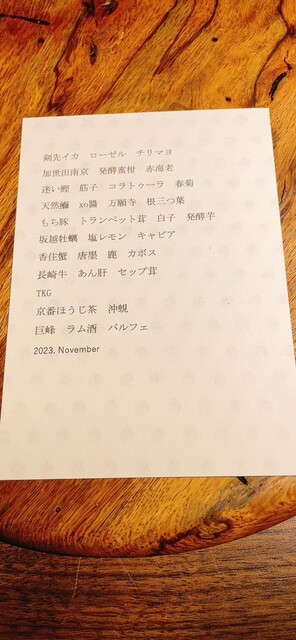 剣先イカ　ローゼル　チリマヨ
加世田南京　発酵蜜柑　赤海老
迷い鰹　筋子　コラトゥーラ　春菊
天然鰤　xo醤　万願寺　根三つ葉
もち豚　トランペット茸　白子　発酵芋
坂越牡蠣　塩レモン　キャビア
香住蟹　唐墨　鹿　カボス
長崎牛　あん肝　セップ茸
TKG
京番ほうじ茶　沖蜆
巨峰　ラム酒　パルフェ
2023. November